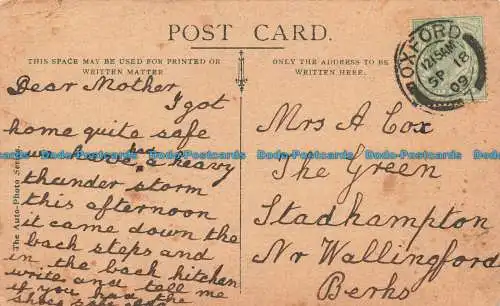 POST CARD.
THIS SPACE MAY BE USED FOR PRINTED OR
WRITTEN MATTER
ONLY THE ADDRESS TO BE
WRITTEN HERE.
OXFORD
12.15AM
SP 18
09
The Auto-Photo Series.
Dear Mother
I got
home quite safe
we have had a heavy
thunder storm
this afternoon
it came down the
back steps and
in the back kitchen
write and tell me
if you had the
shoes
Mrs A Cox
The Green
Stadhampton
Nr Wallingford
Berks
Dodo-Postcards Dodo-Postcards Dodo-Postcards Dodo-Postcards Dodo-Postcards